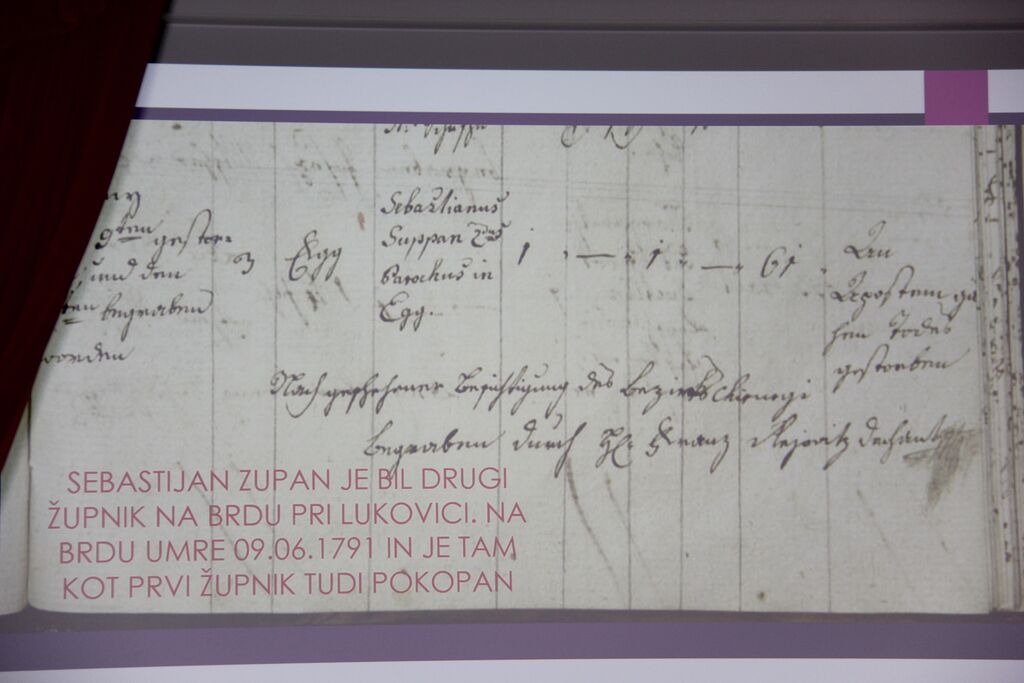 9ten gestor=
und den
begraben
worden
3
Egg
Sebastianus
Suppan 2dus
Parochus in
Egg.
1 — 1 — 61
An
Apostem gä
hen Todes
gestorben
Nach geschehener Besichtigung des Bezirks Chirurgi
begraben durch Franz Dechant
SEBASTIJAN ZUPAN JE BIL DRUGI
ŽUPNIK NA BRDU PRI LUKOVICI. NA
BRDU UMRE 09.06.1791 IN JE TAM
KOT PRVI ŽUPNIK TUDI POKOPAN